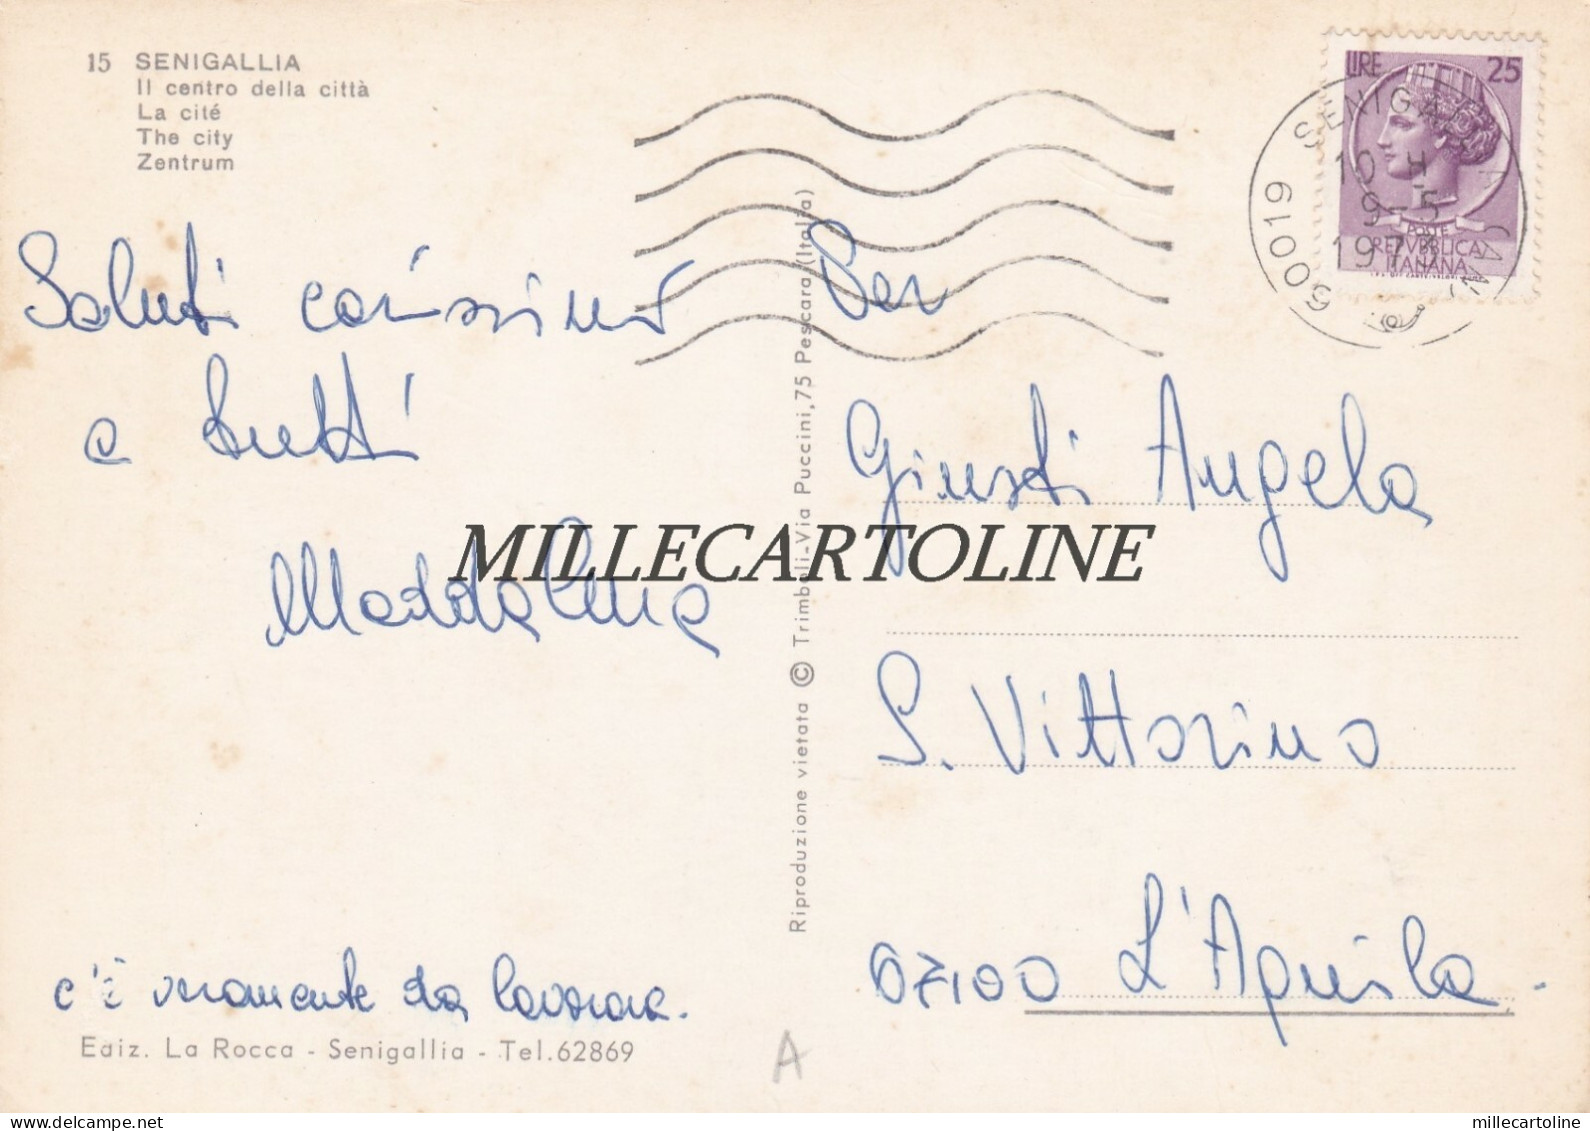 15 SENIGALLIA
Il centro della città
La cité
The city
Zentrum
LIRE 25
POSTE
REPVBBLICA
ITALIANA
60019 SENIGALLIA
9-5
Saluti carissimi
a tutti
Maddalena
c'è veramente da lavorare.
Ediz. La Rocca - Senigallia - Tel.62869
Riproduzione vietata © Trimboli-Via Puccini,75 Pescara (Italia)
Per
Giusti Angela
S. Vittorino
67100 L'Aquila.
A
MILLECARTOLINE
www.delcampe.net
millecartoline